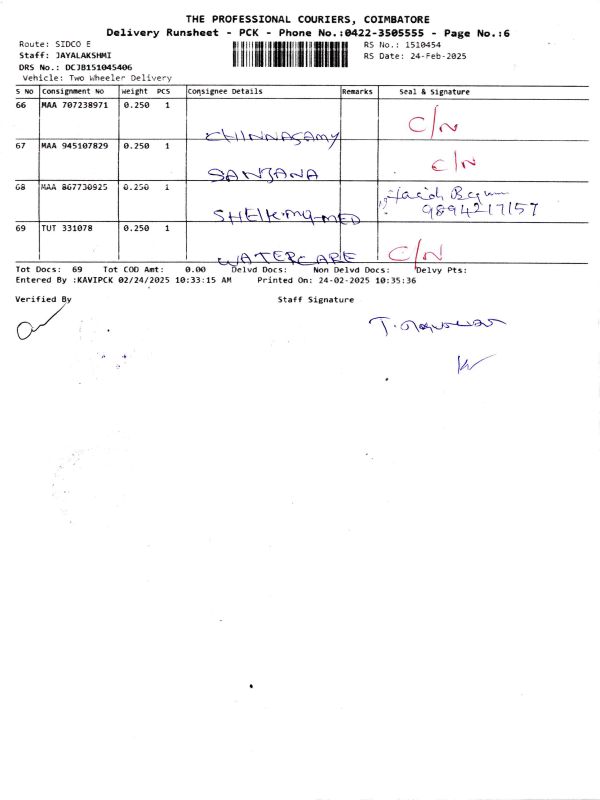 THE PROFESSIONAL COURIERS, COIMBATORE
Delivery Runsheet - PCK - Phone No.:0422-3505555 - Page No.:6
Route: SIDCO E
RS No.: 1510454
Staff: JAYALAKSHMI
RS Date: 24-Feb-2025
DRS No.: DCJB151045406
Vehicle: Two Wheeler Delivery
S No Consignment No Weight PCS Consignee Details Remarks Seal & Signature
66 MAA 707238971 0.250 1
C/N
CHINNASAMY
67 MAA 945107829 0.250 1
C/N
SANJANA
68 MAA 867730925 0.250 1
Begum
9894217157
SHEIK.MU-MED
69 TUT 331078 0.250 1
C/N
WATERCARE
Tot Docs: 69 Tot COD Amt: 0.00 Delvd Docs: Non Delvd Docs: Delvy Pts:
Entered By :KAVIPCK 02/24/2025 10:33:15 AM Printed On: 24-02-2025 10:35:36
Verified By Staff Signature